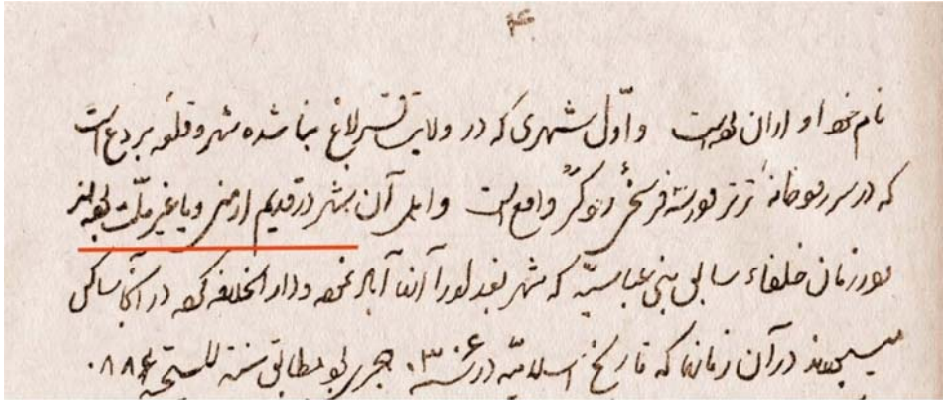 نام خود او اران بوده است و اوّل شهری که در ولایت قراباغ بنا شده شهر و قلعه بردع است
که در سر رودخانهٔ ترتر و در سه فرسخیٔ رود کُر واقع است و اهل آن شهر در قدیم ارمنی و یا غیر ملّت بوده‌اند
و در زمان خلفاء سابق بنی عباسیّه که شهر بغداد را آنها آباد نموده و دار الخلافه کرده در آنجا ساکن
میبودند در آن زمانها که تاریخ اسلامیّه در سنه ۳۰ هجری بود مطابق سنه للمسیحیه